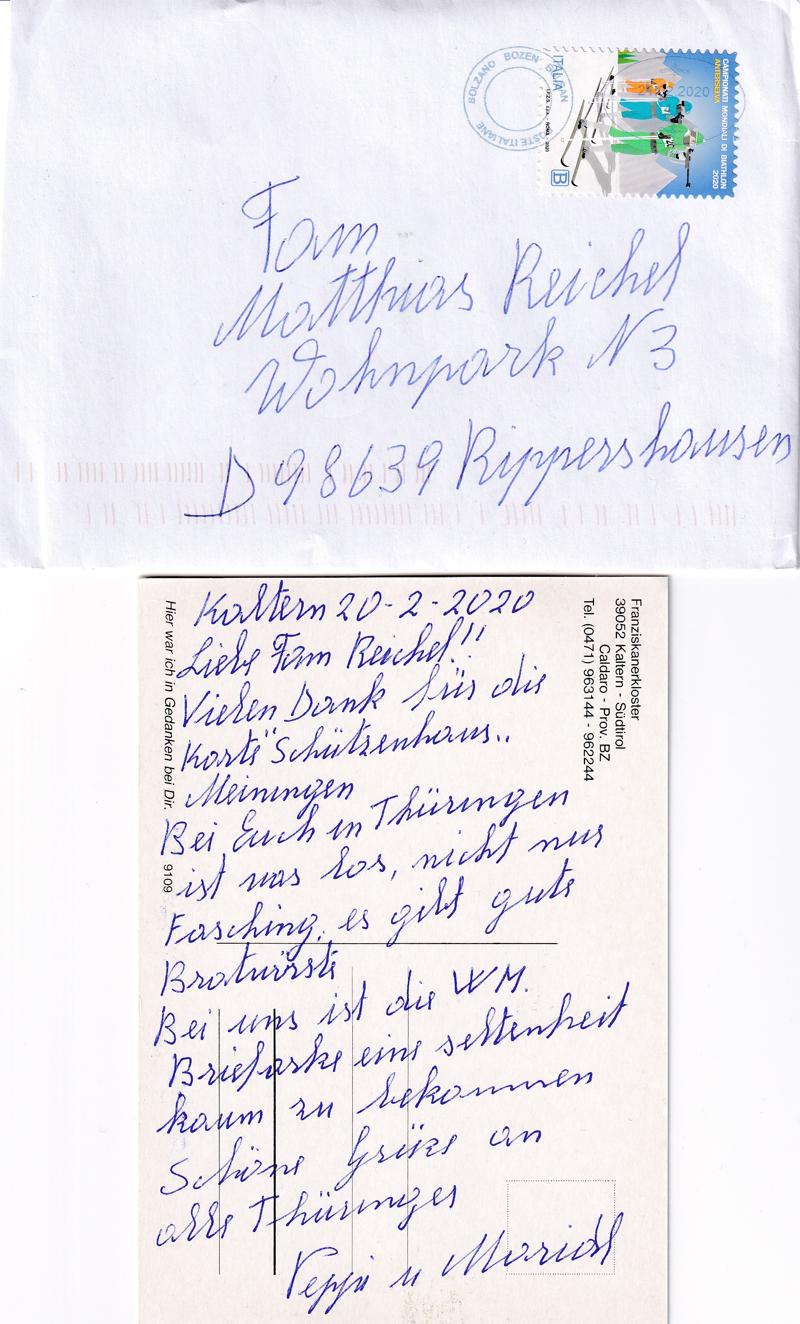 BOLZANO BOZEN
POSTE ITALIANE
2020
ITALIA
B
CAMPIONATI MONDIALI DI BIATHLON
ANTERSELVA
2020
Fam
Matthias Reichel
Wohnpark N 3
D 98639 Rippershausen
Franziskanerkloster
39052 Kaltern - Südtirol
Caldaro - Prov. BZ
Tel. (0471) 963144 - 962244
Hier war ich in Gedanken bei Dir.
9109
Kaltern 20-2-2020
Liebe Fam Reichel!!
Vielen Dank für die
Karte "Schützenhaus..
Meiningen
Bei Euch in Thüringen
ist was los, nicht nur
Fasching, es gibt gute
Bratwürste
Bei uns ist die WM.
Briefmarke eine seltenheit
kaum zu bekommen
Schöne Grüße an
alle Thüringer
u Mariedl